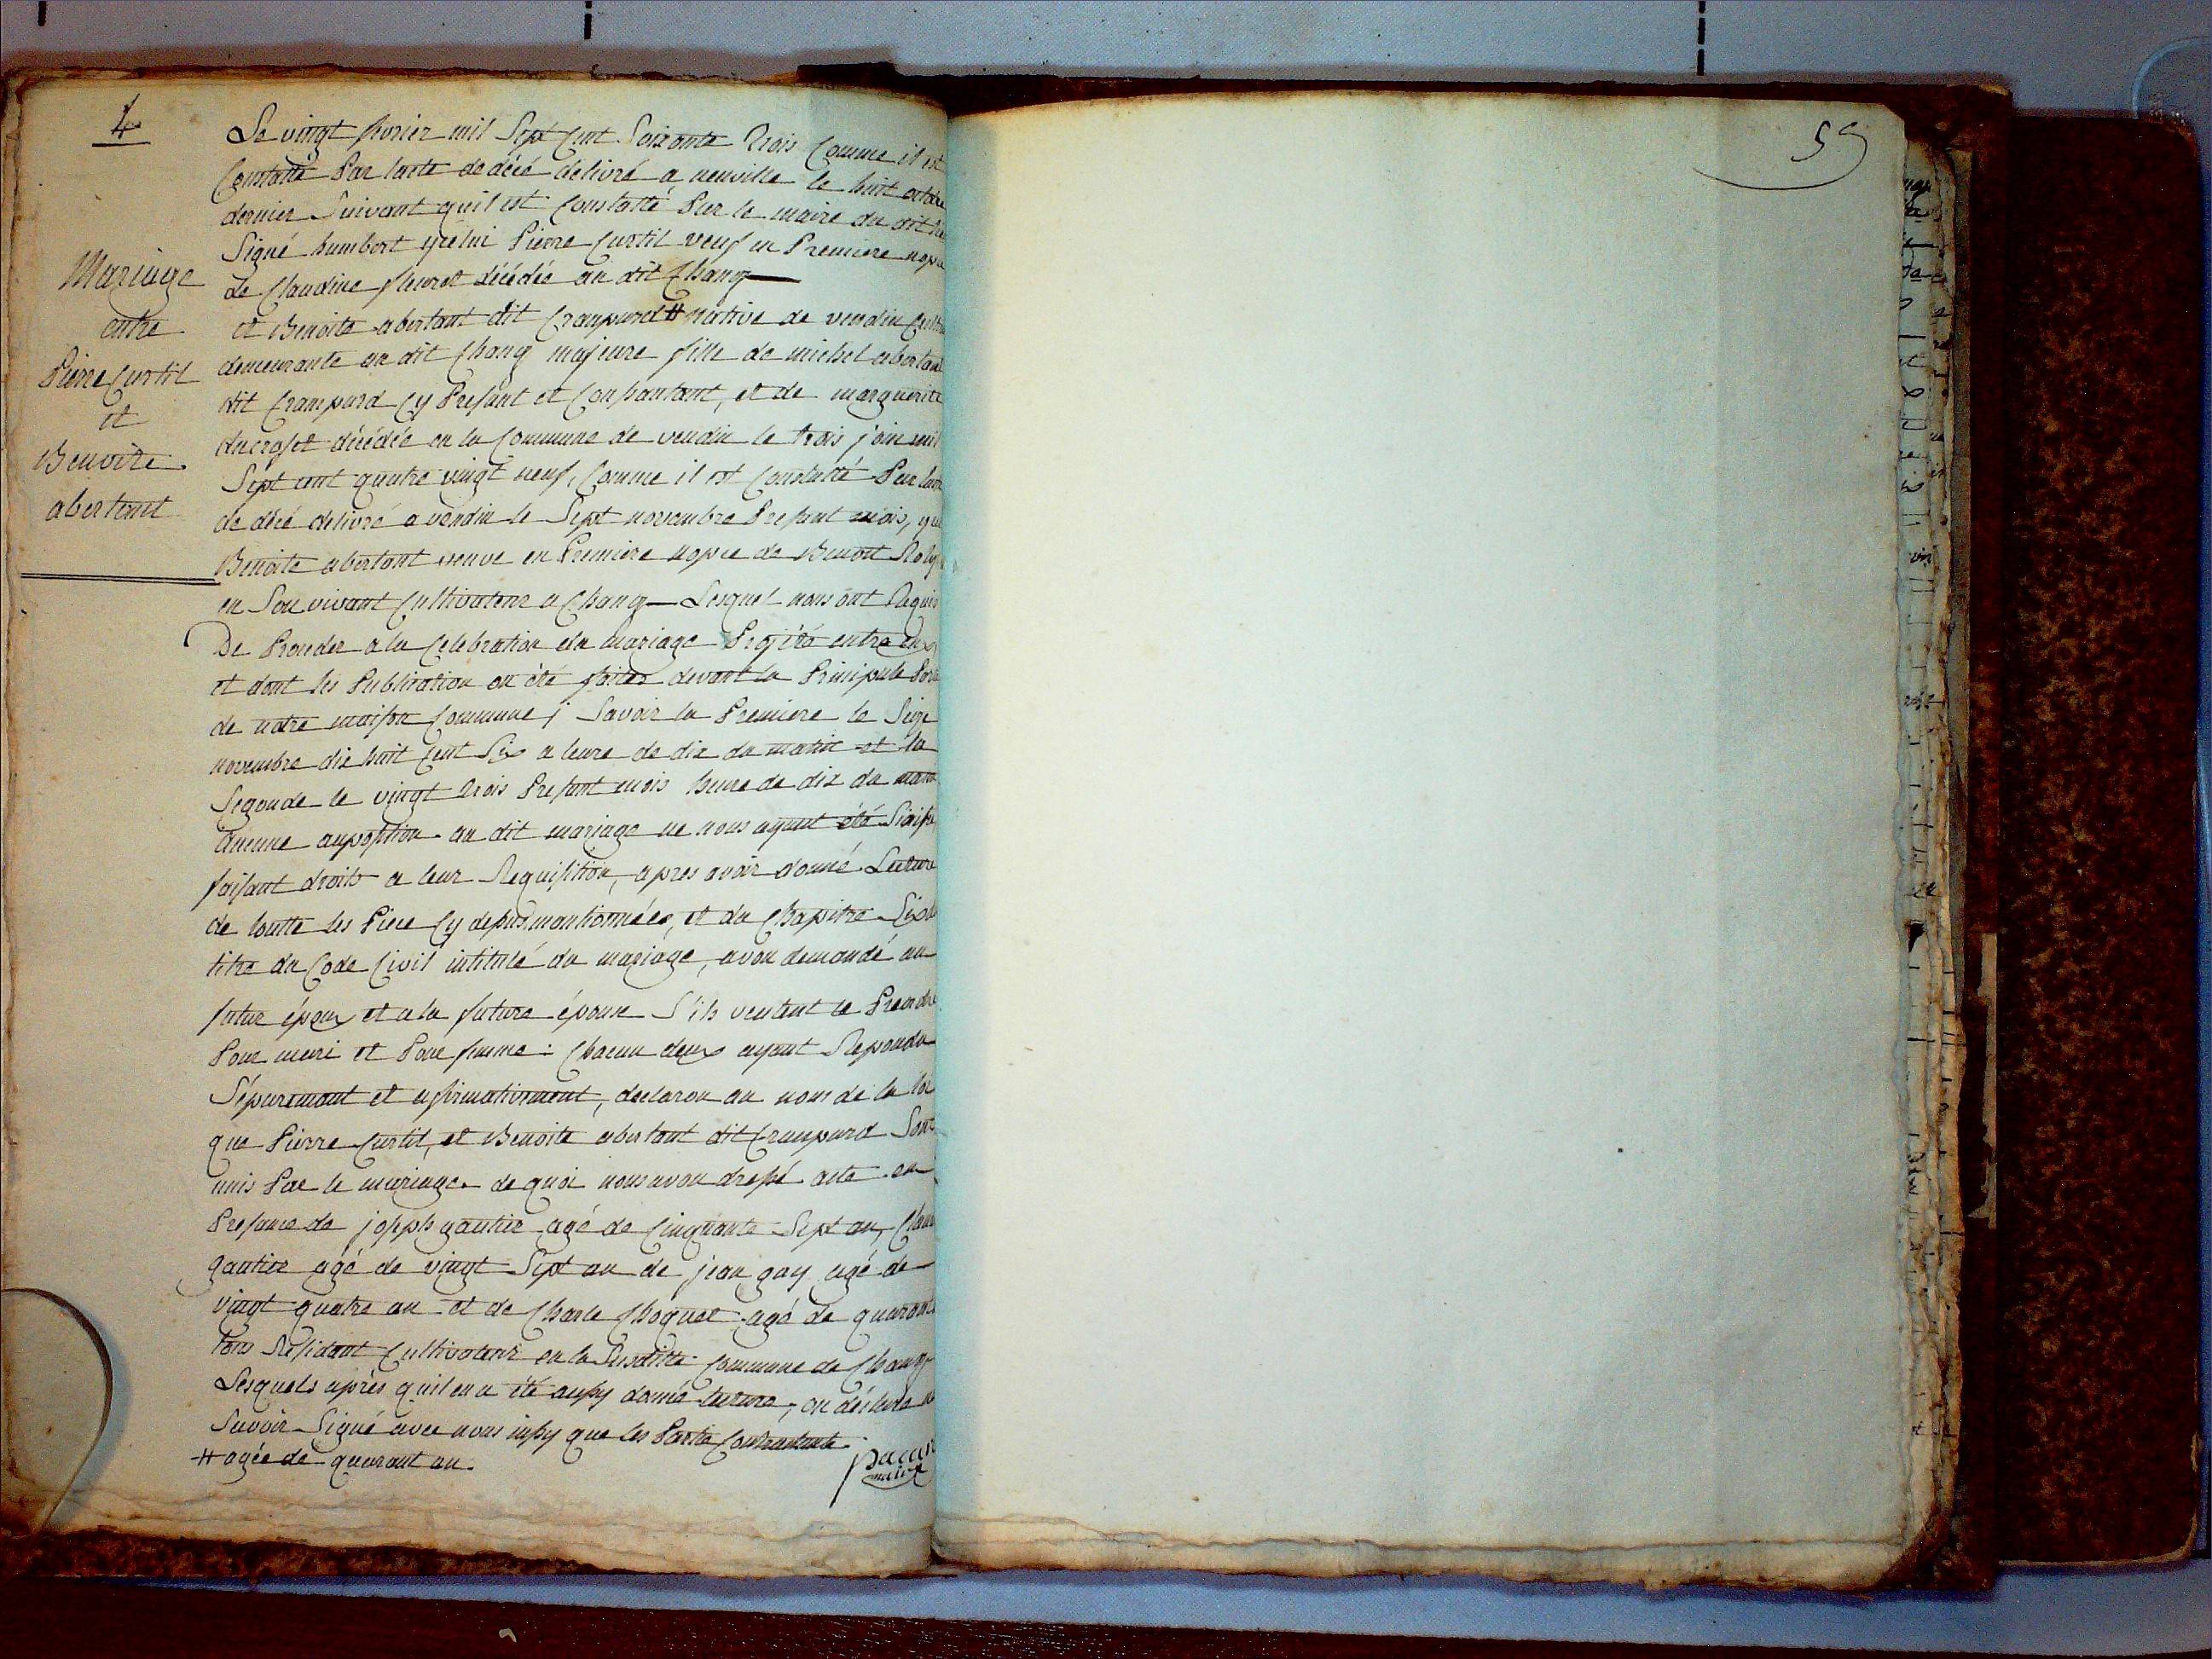 4
55
Mariage
entre
Pierre Curtil
et
Benoite
abertant
Le vingt fevrier mil Sept Cent Soixante trois Comme il est
Constatté Par lacte de décé delivré a neuville le huit octobre
dernier Suivant quil est Constatté Par le maire du dit
Signé humbert ycelui Pierre Curtil veuf en Premiere nopce
de Claudine fleuret décédée au dit Chanoz
et Benoite abertant dit Crampard # native de vendin
demeurante au dit Chanoz majeure fille de michel abertant
dit Crampard Cy Present et Consantant, et de marguerite
ducroset décédée en la Commune de vendin le trois join mil
Sept cent quatre vingt neuf, Comme il est Constatté Par lacte
de décé delivré a vendin le Sept novembre Present mois,
Benoite abertant veuve en Premiere nopce de Benoit
en Son vivant Cultivateur a Chanoz Lesquel nous ont Requis
De Proceder a la Celebration du mariage Projété entre eux
et dont les Publication on été faites devant la Principale Porte
de notre maison Commune; Savoir la Premiere le Seize
novembre dix huit Cent Six a leure de dix du matin et la
Segonde le vingt trois Present mois heure de dix du matin
aucune auposition au dit mariage ne nous ayant été
faisant droits a leur Requisition, apres avoir donné Lecture
de toutte les Piece Cy depus mantionnées, et du Chapitre Six du
titre du Code Civil intitulé du mariage, avon demandé au
futur époux et a la future épouse S'ils veulent Se Prendre
Pour mari et Pour femme: Chacun deux ayant Repondu
Séparemant et afirmativement, declaron au nom de la loi
que Pierre Curtil, et Benoite abertant dit Crampard Sont
unis Par le mariage. de quoi nous avon dressé acte en
Presance de joseph gautier agé de Cinquante Sept an,
gautier agé de vingt Sept an de jean gay agé de
vingt quatre an et de Charle Choquet agé de quarante
tous Residant Cultivateur en la Susditte Commune de Chanoz
Lesquels après quil en a été aussy donné lecture, on déclaré ne
Savoir Signé avec nous insy que les Partie Contractante.
# agée de quarant an.
maire